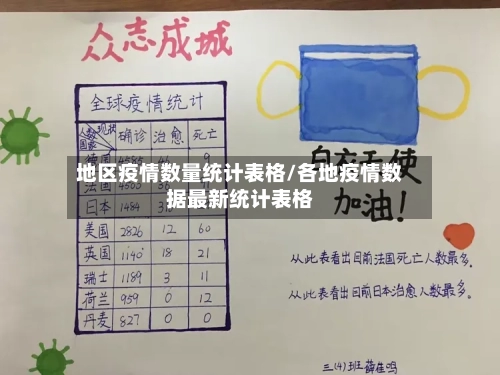 众志成城
全球疫情统计
人数 现状 国家 确诊 治愈 死亡
日本 1484
美国 2826 12 60
英国 1140 18 21
瑞士 1189 3 11
荷兰 959 0 12
丹麦 827 0 0
地区疫情数量统计表格/各地疫情数
据最新统计表格
加油!
从此表看出目前法国死亡人数最多.
从此表看出目前日本治愈人数最多。
三(4)班